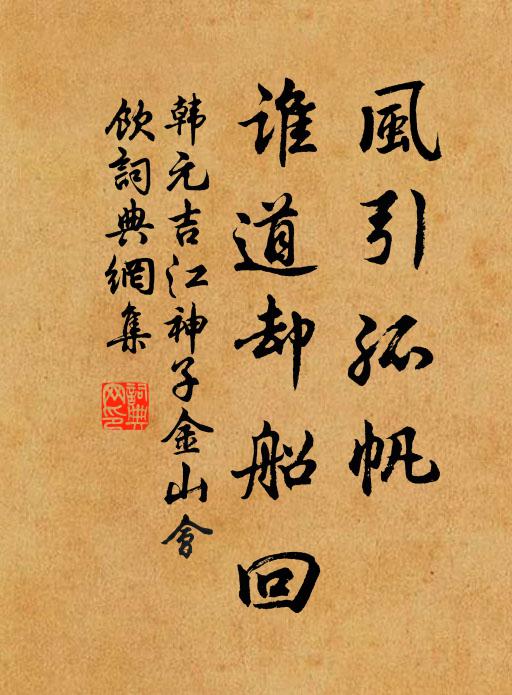 風引孤帆
誰道却船回
韩元吉江神子金山會
飲詞典網集
詞典
网印